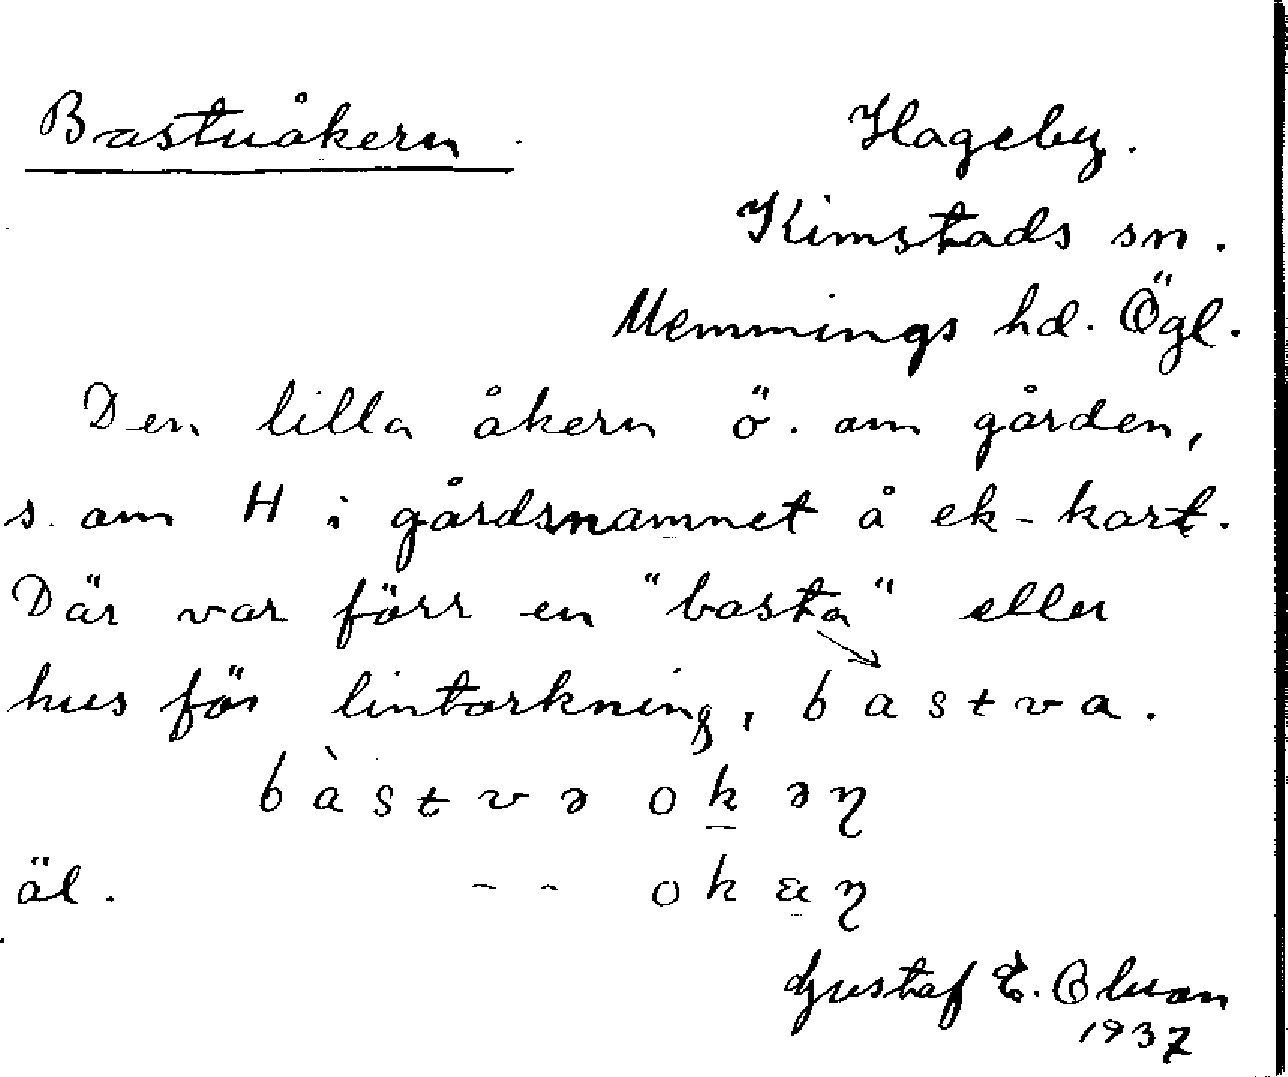 Bastuåkern. Hageby.
Kimstads sn.
Memmings hd. Ögl.
Den lilla åkern ö. om gården,
s. om H i gårdsnamnet å ek-kart.
Där var förr en "basta" eller
hus för lintorkning, bastva.
bàstvə okəɳ
äl. - - okæɳ
Gustaf E. Olsson
1937